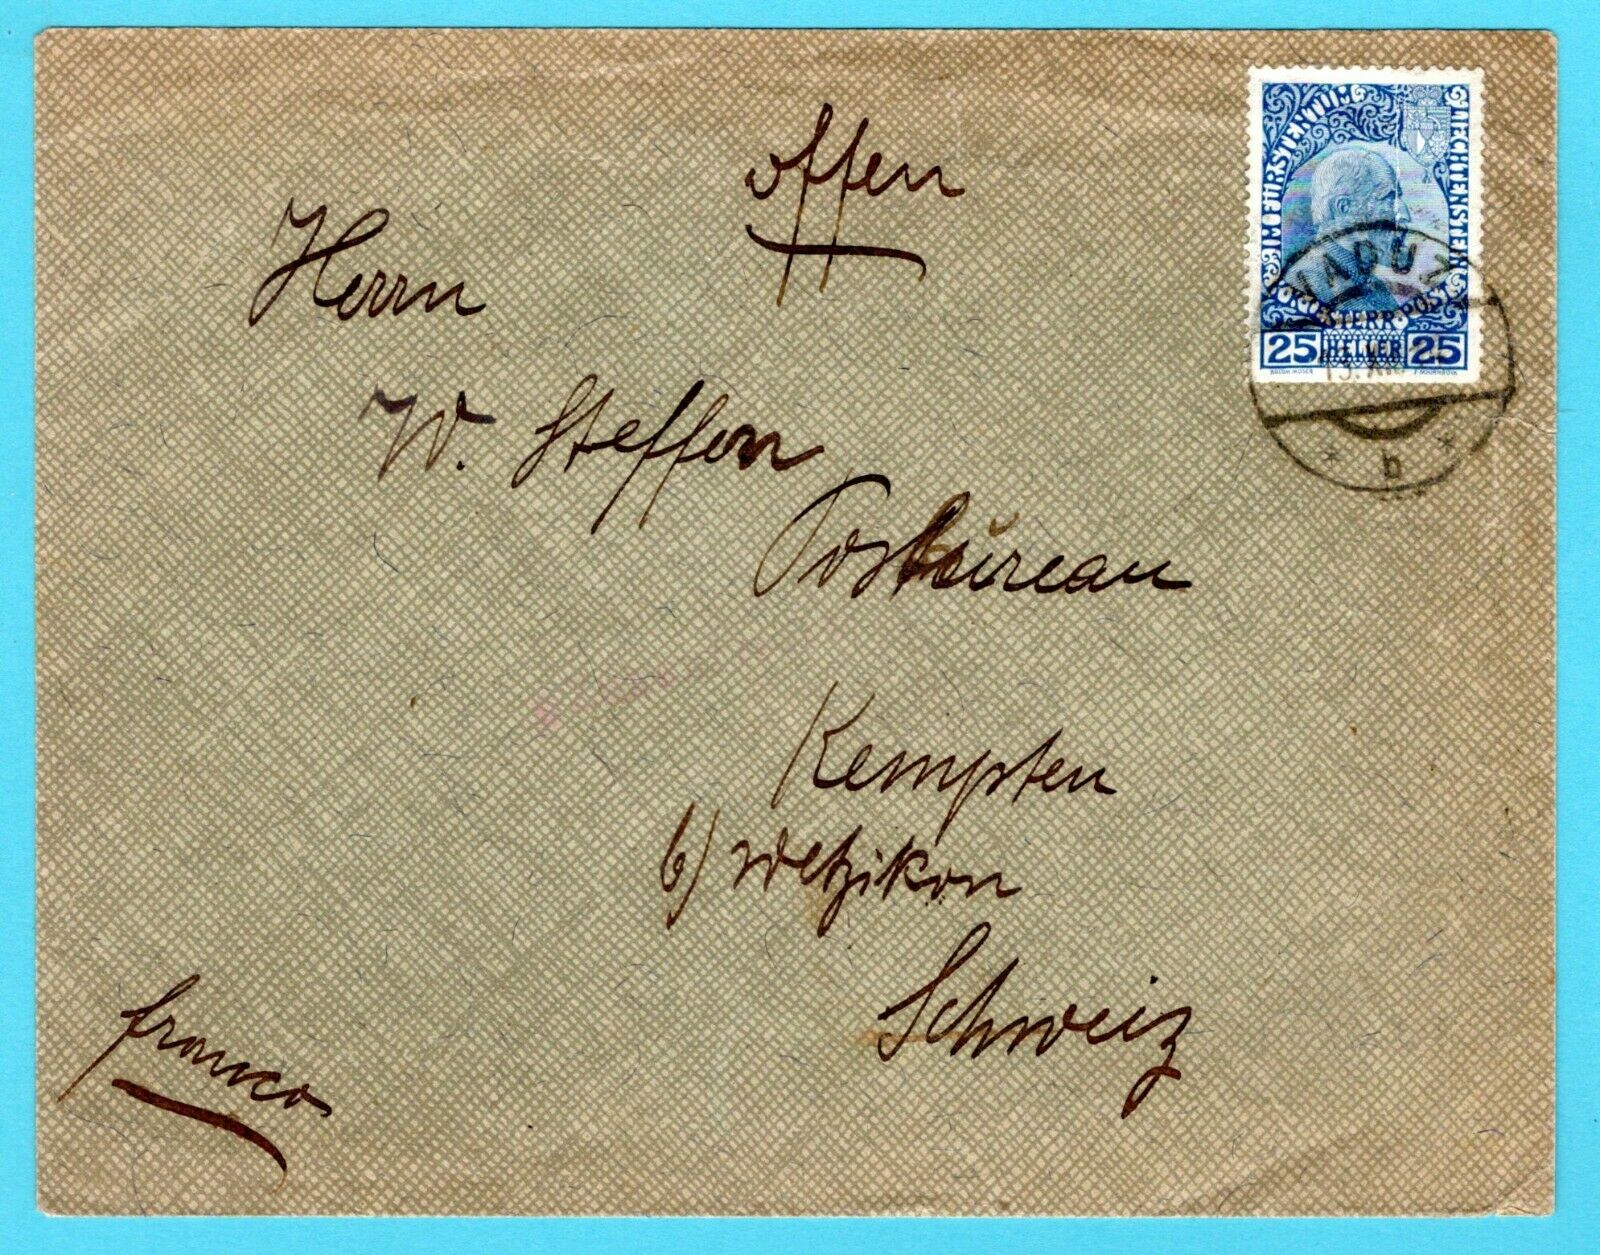 offen
Herrn
W. Steffen
Postbureau
Kempten
b/ Wetzikon
Schweiz
franco
IM FÜRSTENTUM LIECHTENSTEIN
K.K. OESTERR. POST
25 HELLER 25
KOLOM. MOSER
F. SCHIRNBÖCK
VADUZ
* b *